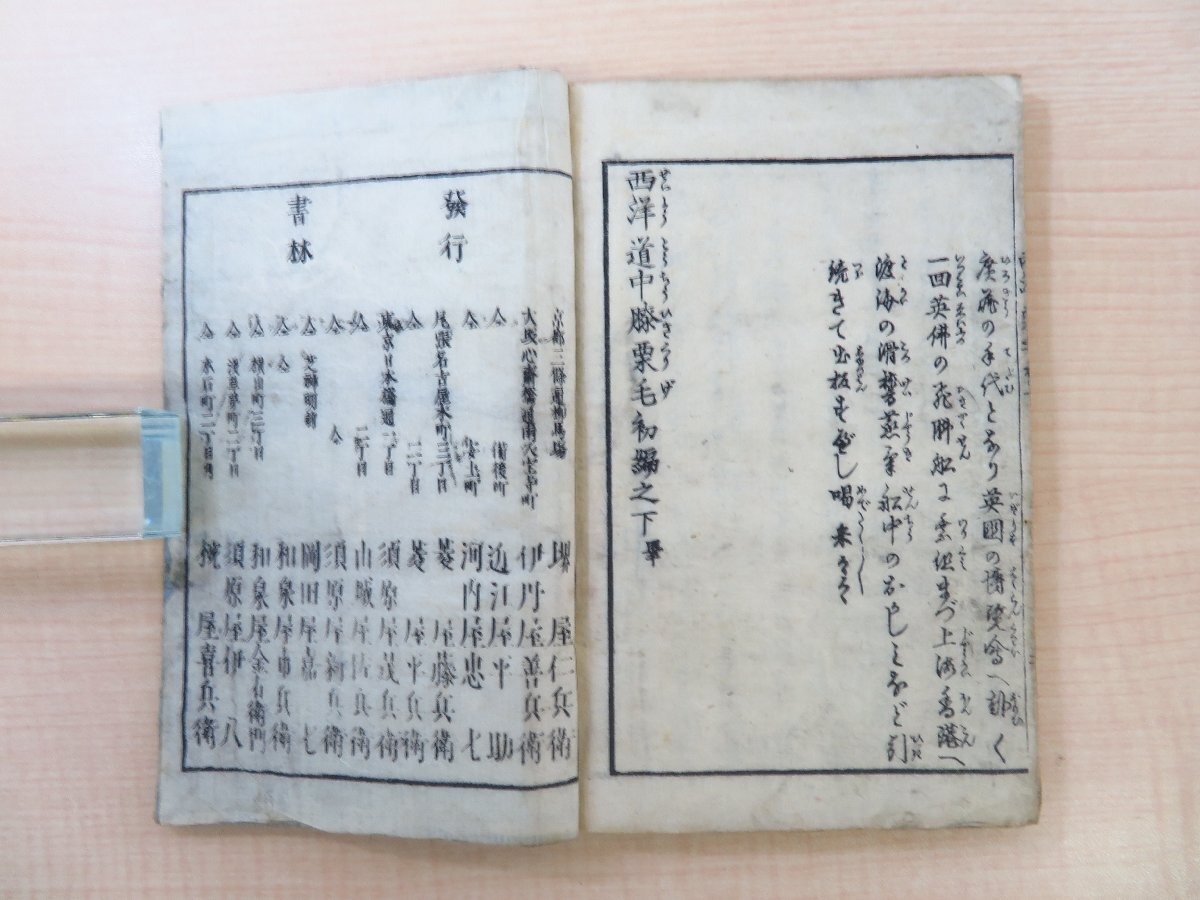 廣蔵の手代となり英國の博覧會へ趣く
一回英佛の飛脚舩に乗組まづ上海香港へ
渡海の滑稽蒸気舩中のおかしみなど引
続きて出板すべし喝采〳〵
西洋道中膝栗毛初編之下畢
發行
書林
京都三條通柳馬場 堺屋仁兵衛
大阪心齋橋通南久宝寺町 伊丹屋善兵衛
仝 備後町 近江屋平助
仝 安土町 河内屋忠七
尾張名古屋本町 菱屋藤兵衛
仝 二丁目 菱屋平兵衛
東京日本橋通一丁目 須原屋茂兵衛
仝 二丁目 山城屋佐兵衛
仝 仝 須原屋新兵衛
仝 芝神明前 岡田屋嘉七
仝 仝 和泉屋市兵衛
仝 横山町三丁目 和泉屋金右衛門
仝 浅草茅町二丁目 須原屋伊八
仝 本石町二丁目角 椀屋喜兵衛